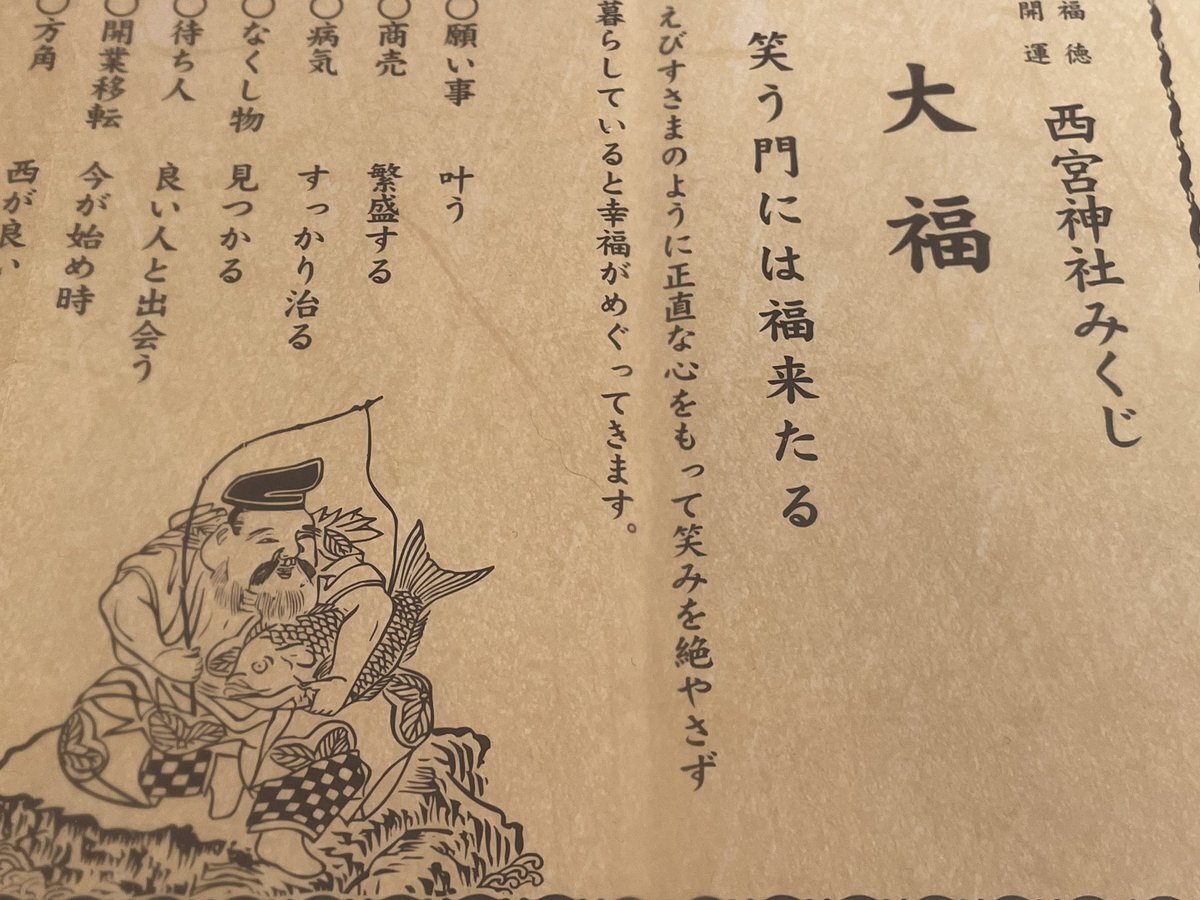 福徳
開運
西宮神社みくじ
大福
笑う門には福来たる
えびすさまのように正直な心をもって笑みを絶やさず
暮らしていると幸福がめぐってきます。
○願い事 叶う
○商売 繁盛する
○病気 すっかり治る
○なくし物 見つかる
○待ち人 良い人と出会う
○開業移転 今が始め時
○方角 西が良い